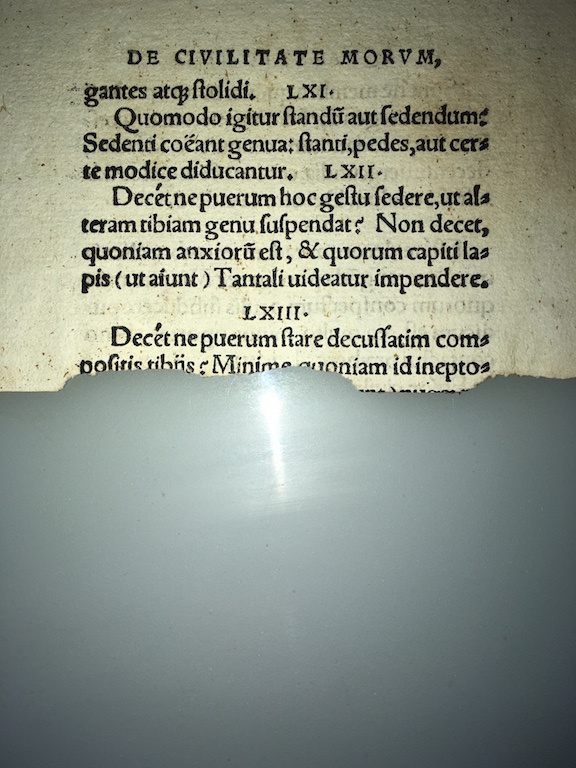 DE CIVILITATE MORVM,
gantes atqꝫ ſtolidi. LXI.
Quomodo igitur ſtandū aut ſedendum?
Sedenti coëant genua: ſtanti, pedes, aut cer-
te modice diducantur. LXII.
Decét ne puerum hoc geſtu ſedere, ut al-
teram tibiam genu ſuſpendat? Non decet,
quoniam anxiorū eſt, & quorum capiti la-
pis (ut aiunt) Tantali uideatur impendere.
LXIII.
Decét ne puerum ſtare decuſſatim com-
poſitis tibijs? Minime quoniam id inepto-